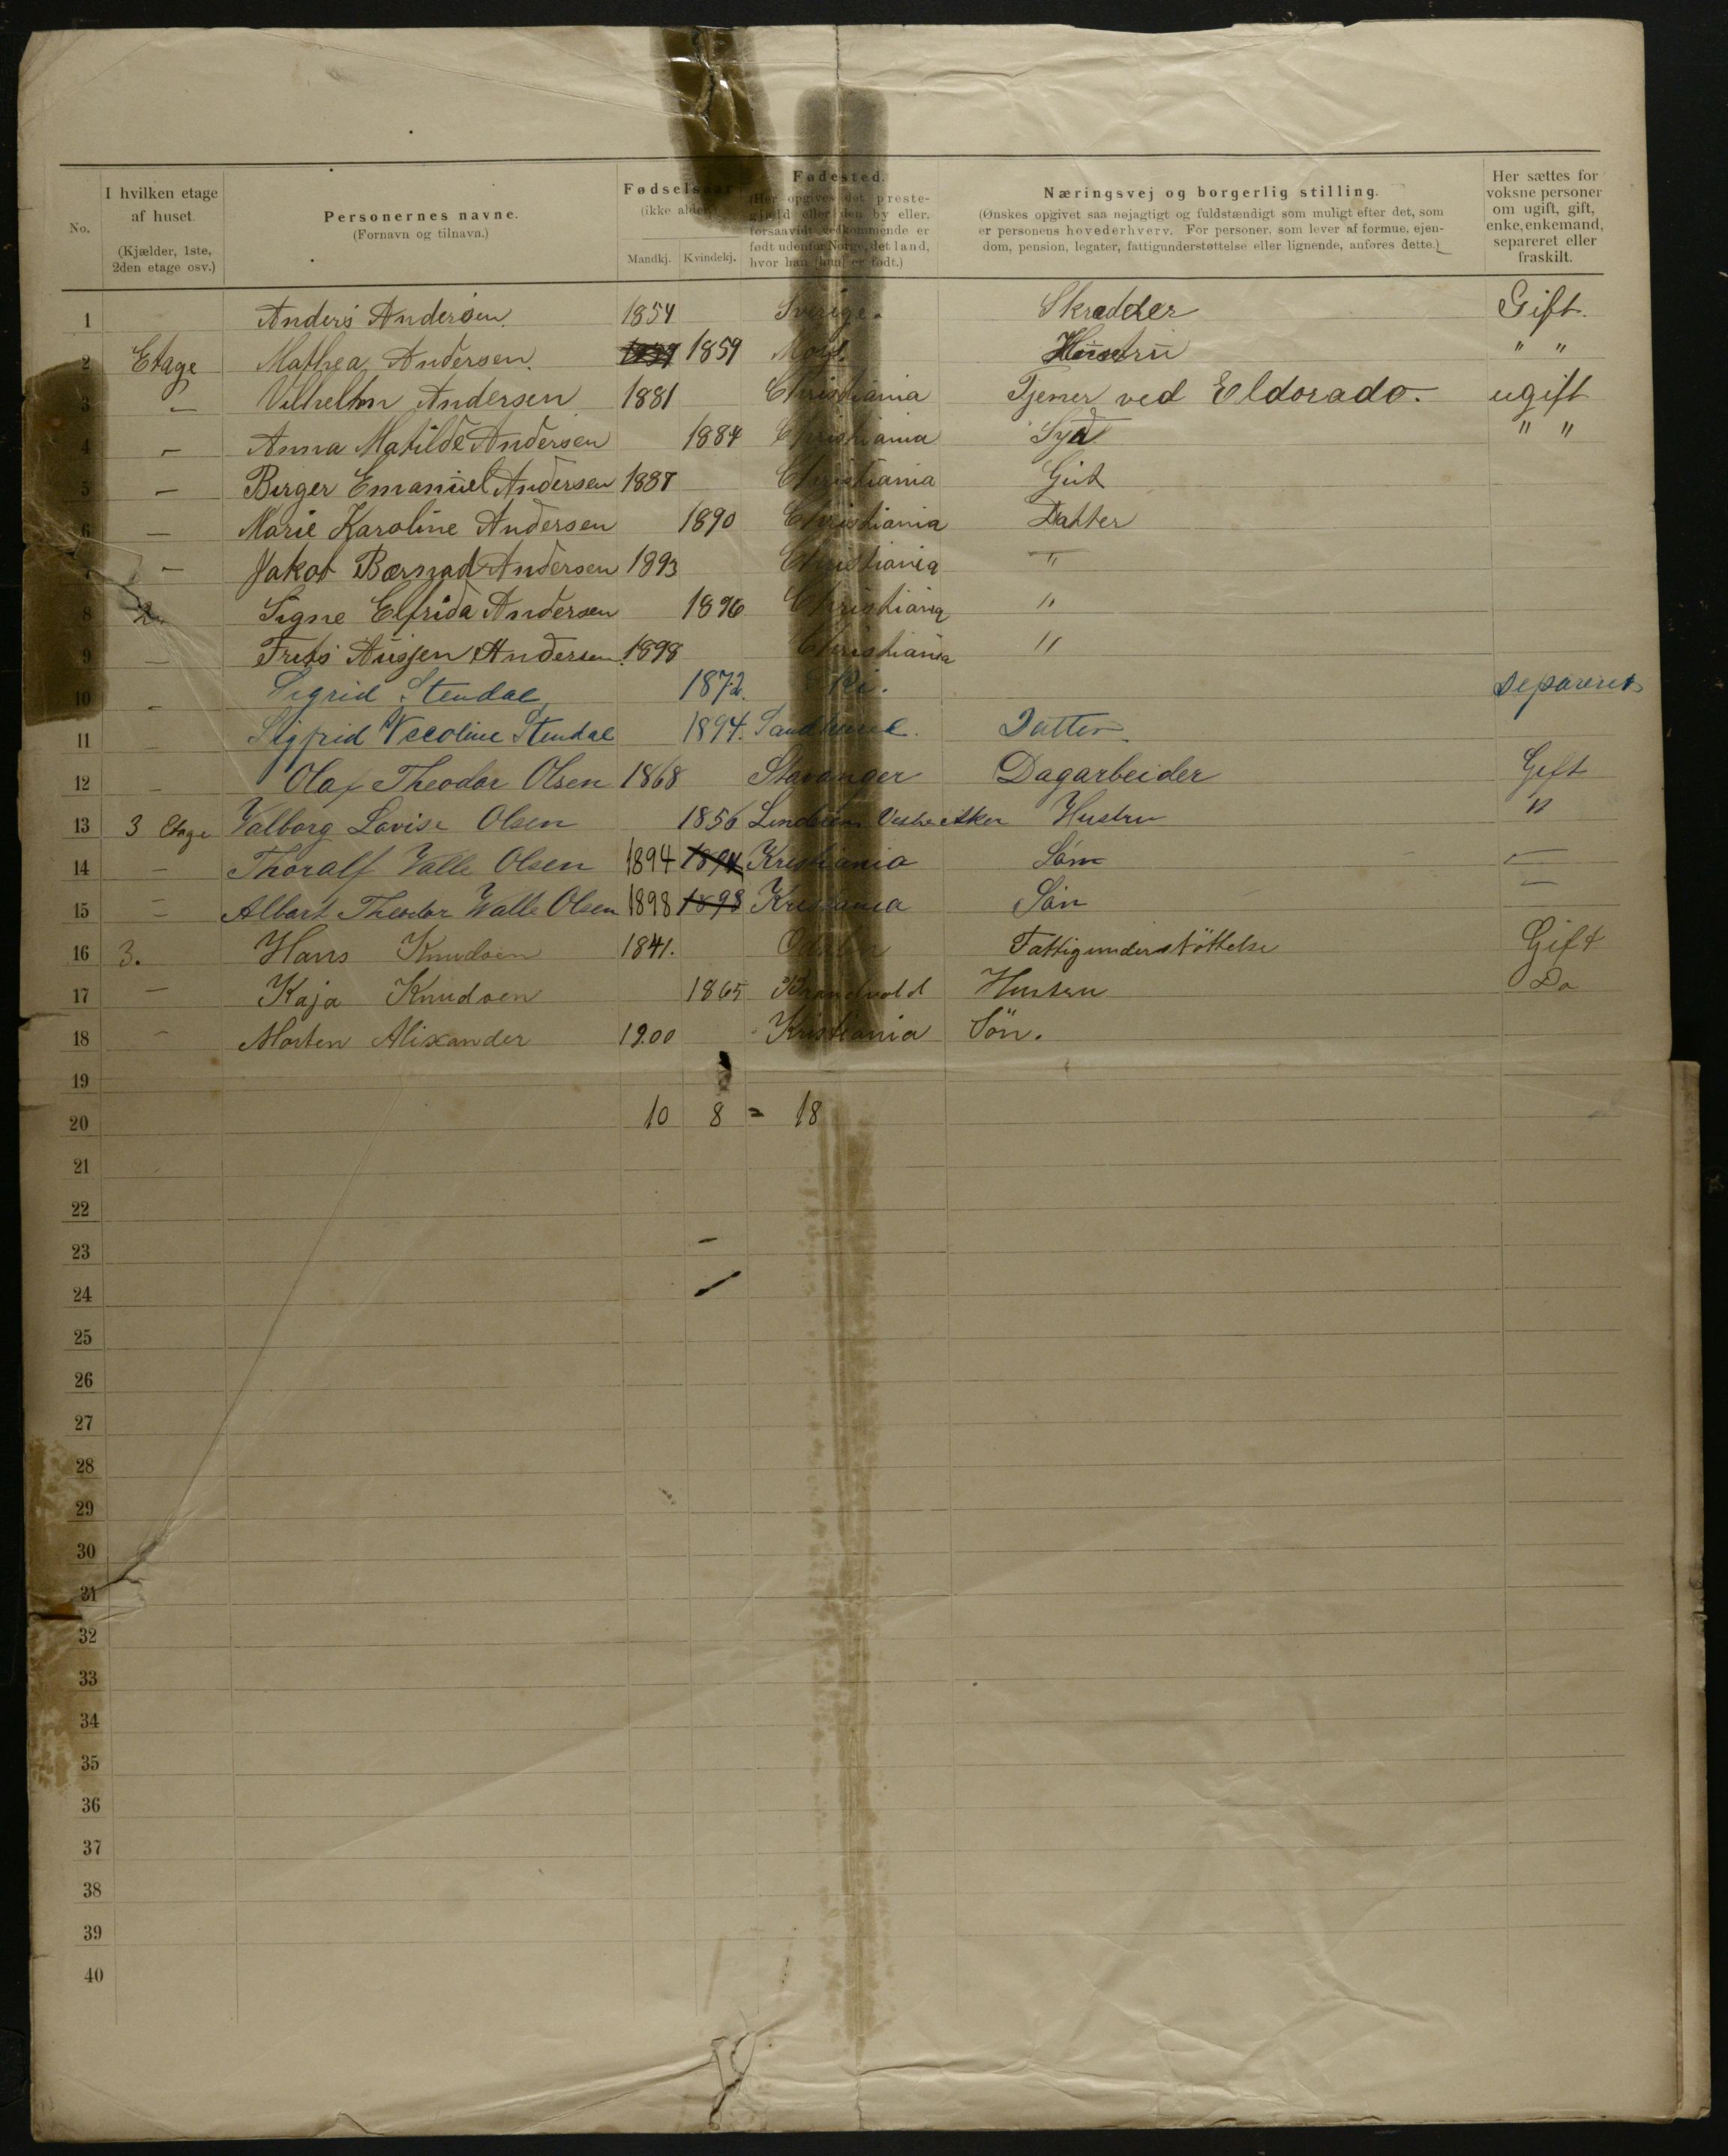 No.
I hvilken etage af huset. (Kjælder, 1ste, 2den etage osv.)
Personernes navne. (Fornavn og tilnavn.)
Fødselsaar (ikke alder) Mandkj. Kvindekj.
Fødested. (Her opgives det prestegjæld eller den by eller, forsaavidt vedkommende er født udenfor Norge, det land, hvor han (hun) er født.)
Næringsvej og borgerlig stilling. (Ønskes opgivet saa nøjagtigt og fuldstændigt som muligt efter det, som er personens hovederhverv. For personer, som lever af formue, ejendom, pension, legater, fattigunderstøttelse eller lignende, anføres dette.)
Her sættes for voksne personer om ugift, gift, enke, enkemand, separeret eller fraskilt.
1 Anders Andersen. 1854 Sverige. Skrædder Gift.
2 Etage Mathea Andersen. 1859 Hüstrü " "
3 — Vilhelm Andersen 1881 Christiania Tjener ved Eldorado. ugift
4 — Anna Matilde Andersen 1884 Christiania " "
5 — Birger Emanüel Andersen 1887 Christiania Gut
6 — Marie Karoline Andersen 1890 Christiania Datter
7 — Jakob Bærnad Andersen 1893 Christiania "
8 2 Signe Elfrida Andersen 1896 Christiania "
9 — Frits Andersen. 1898 Christiania "
10 — Sigrid Stendal 1872. Separeret
11 — Sigfrid Stendal 1894. Datter.
12 — Olaf Theodor Olsen 1868 Stavanger Dagarbeider Gift
13 3 Etage Valborg Lovise Olsen 1856 Vestre Aker Hustru "
14 — Thoralf Valle Olsen 1894 1894 Kristiania Søn —
15 — Albert Theodor Walle Olsen 1898 1898 Kristiania Søn —
16 3. Hans Knudsen 1841. Odalen Fattigunderstöttelse Gift
17 — Kaja Knudsen 1865 Brandvold Hustru Do
18 — Morten Alixander 1900 Kristiania Sön.
19
20 10 8 = 18
21
22
23 -
24
25
26
27
28
29
30
31
32
33
34
35
36
37
38
39
40